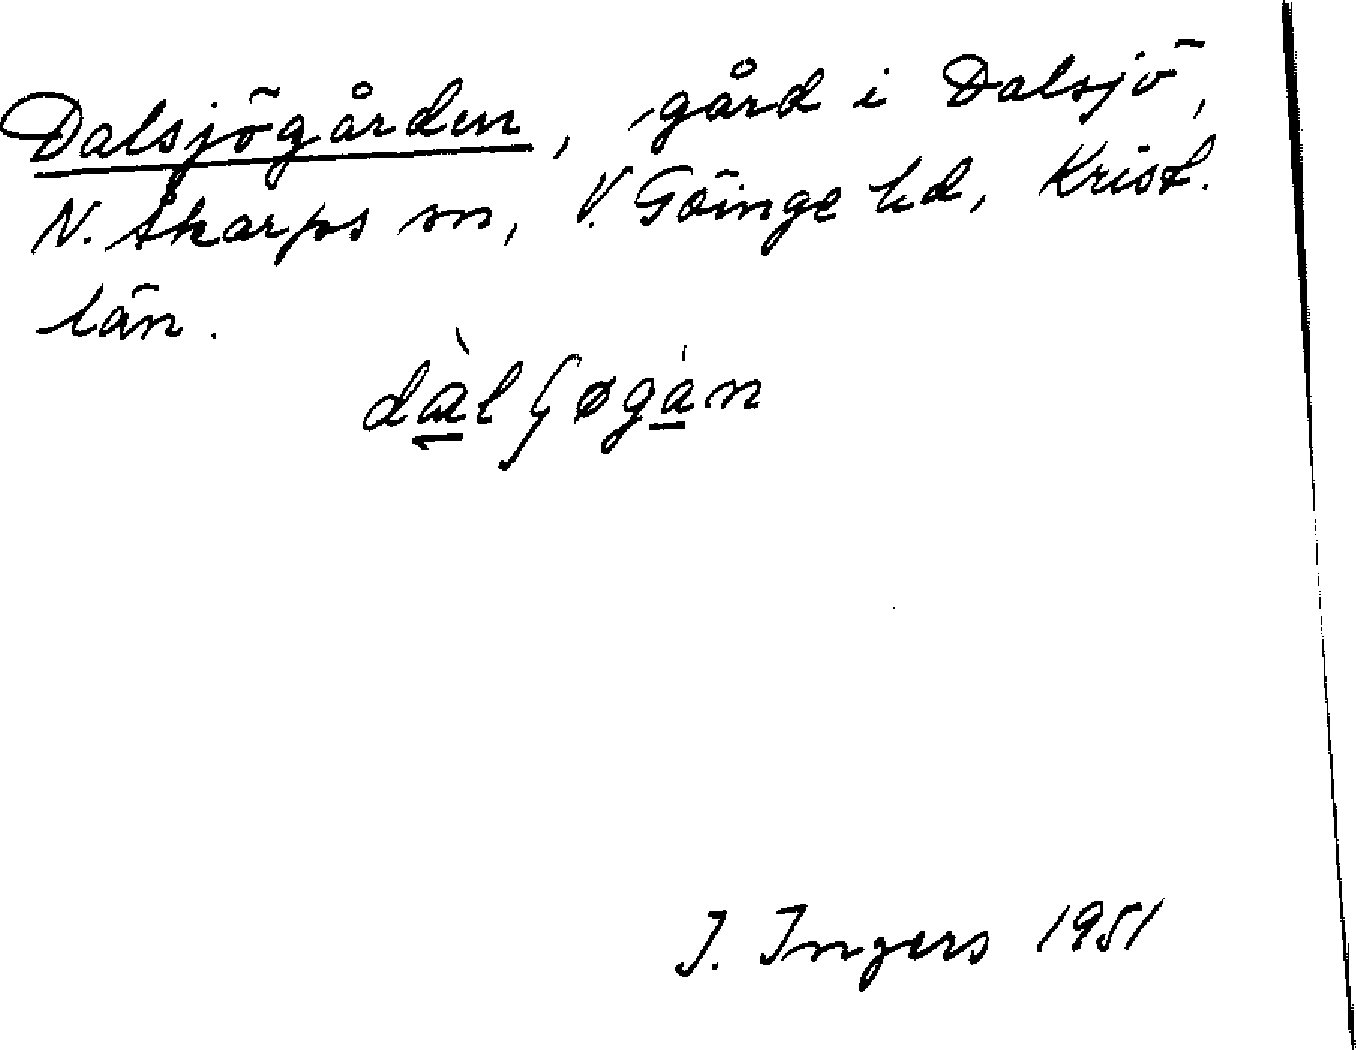 Dalsjögården, gård i Dalsjö,
N. Åkarps sn, V. Göinge hd, Krist.
län.
I. Ingers 1951